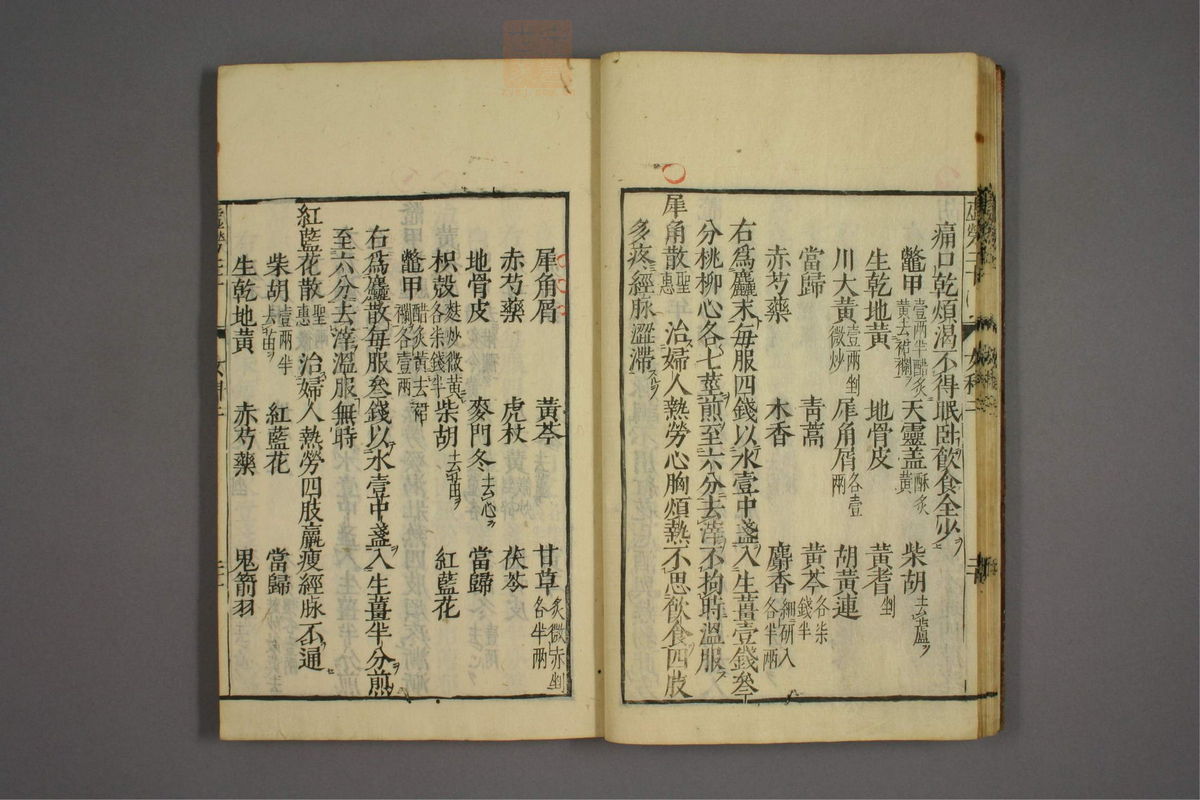 痛口乾煩渴不得眠卧飲食全少
鼈甲壹兩半醋炙黃去裙襴 天靈盖酥炙黃 柴胡去蘆
生乾地黃 地骨皮 黃耆剉
川大黃壹兩剉微炒 犀角屑各壹兩 胡黃連
當歸 青蒿 黃芩各柒錢半
赤芍藥 木香 麝香細研入各半兩
右爲麤末每服四錢以水壹中盞入生薑壹錢叄
分桃柳心各七莖煎至六分去滓不拘時溫服
犀角散聖惠 治婦人熱勞心胸煩熱不思飲食四肢
多疼經脉澀滯
犀角屑 黃芩 甘草炙微赤剉各半兩
赤芍藥 虎杖 茯苓
地骨皮 麥門冬去心 當歸
枳殻麩炒微黃各柒錢半 柴胡去苗 紅藍花
鼈甲醋炙黃去裙襴各壹兩
右爲麤散每服叄錢以水壹中盞入生薑半分煎
至六分去滓溫服無時
紅藍花散聖惠 治婦人熱勞四肢羸瘦經脉不通
柴胡壹兩半去苗 紅藍花 當歸
生乾地黃 赤芍藥 鬼箭羽